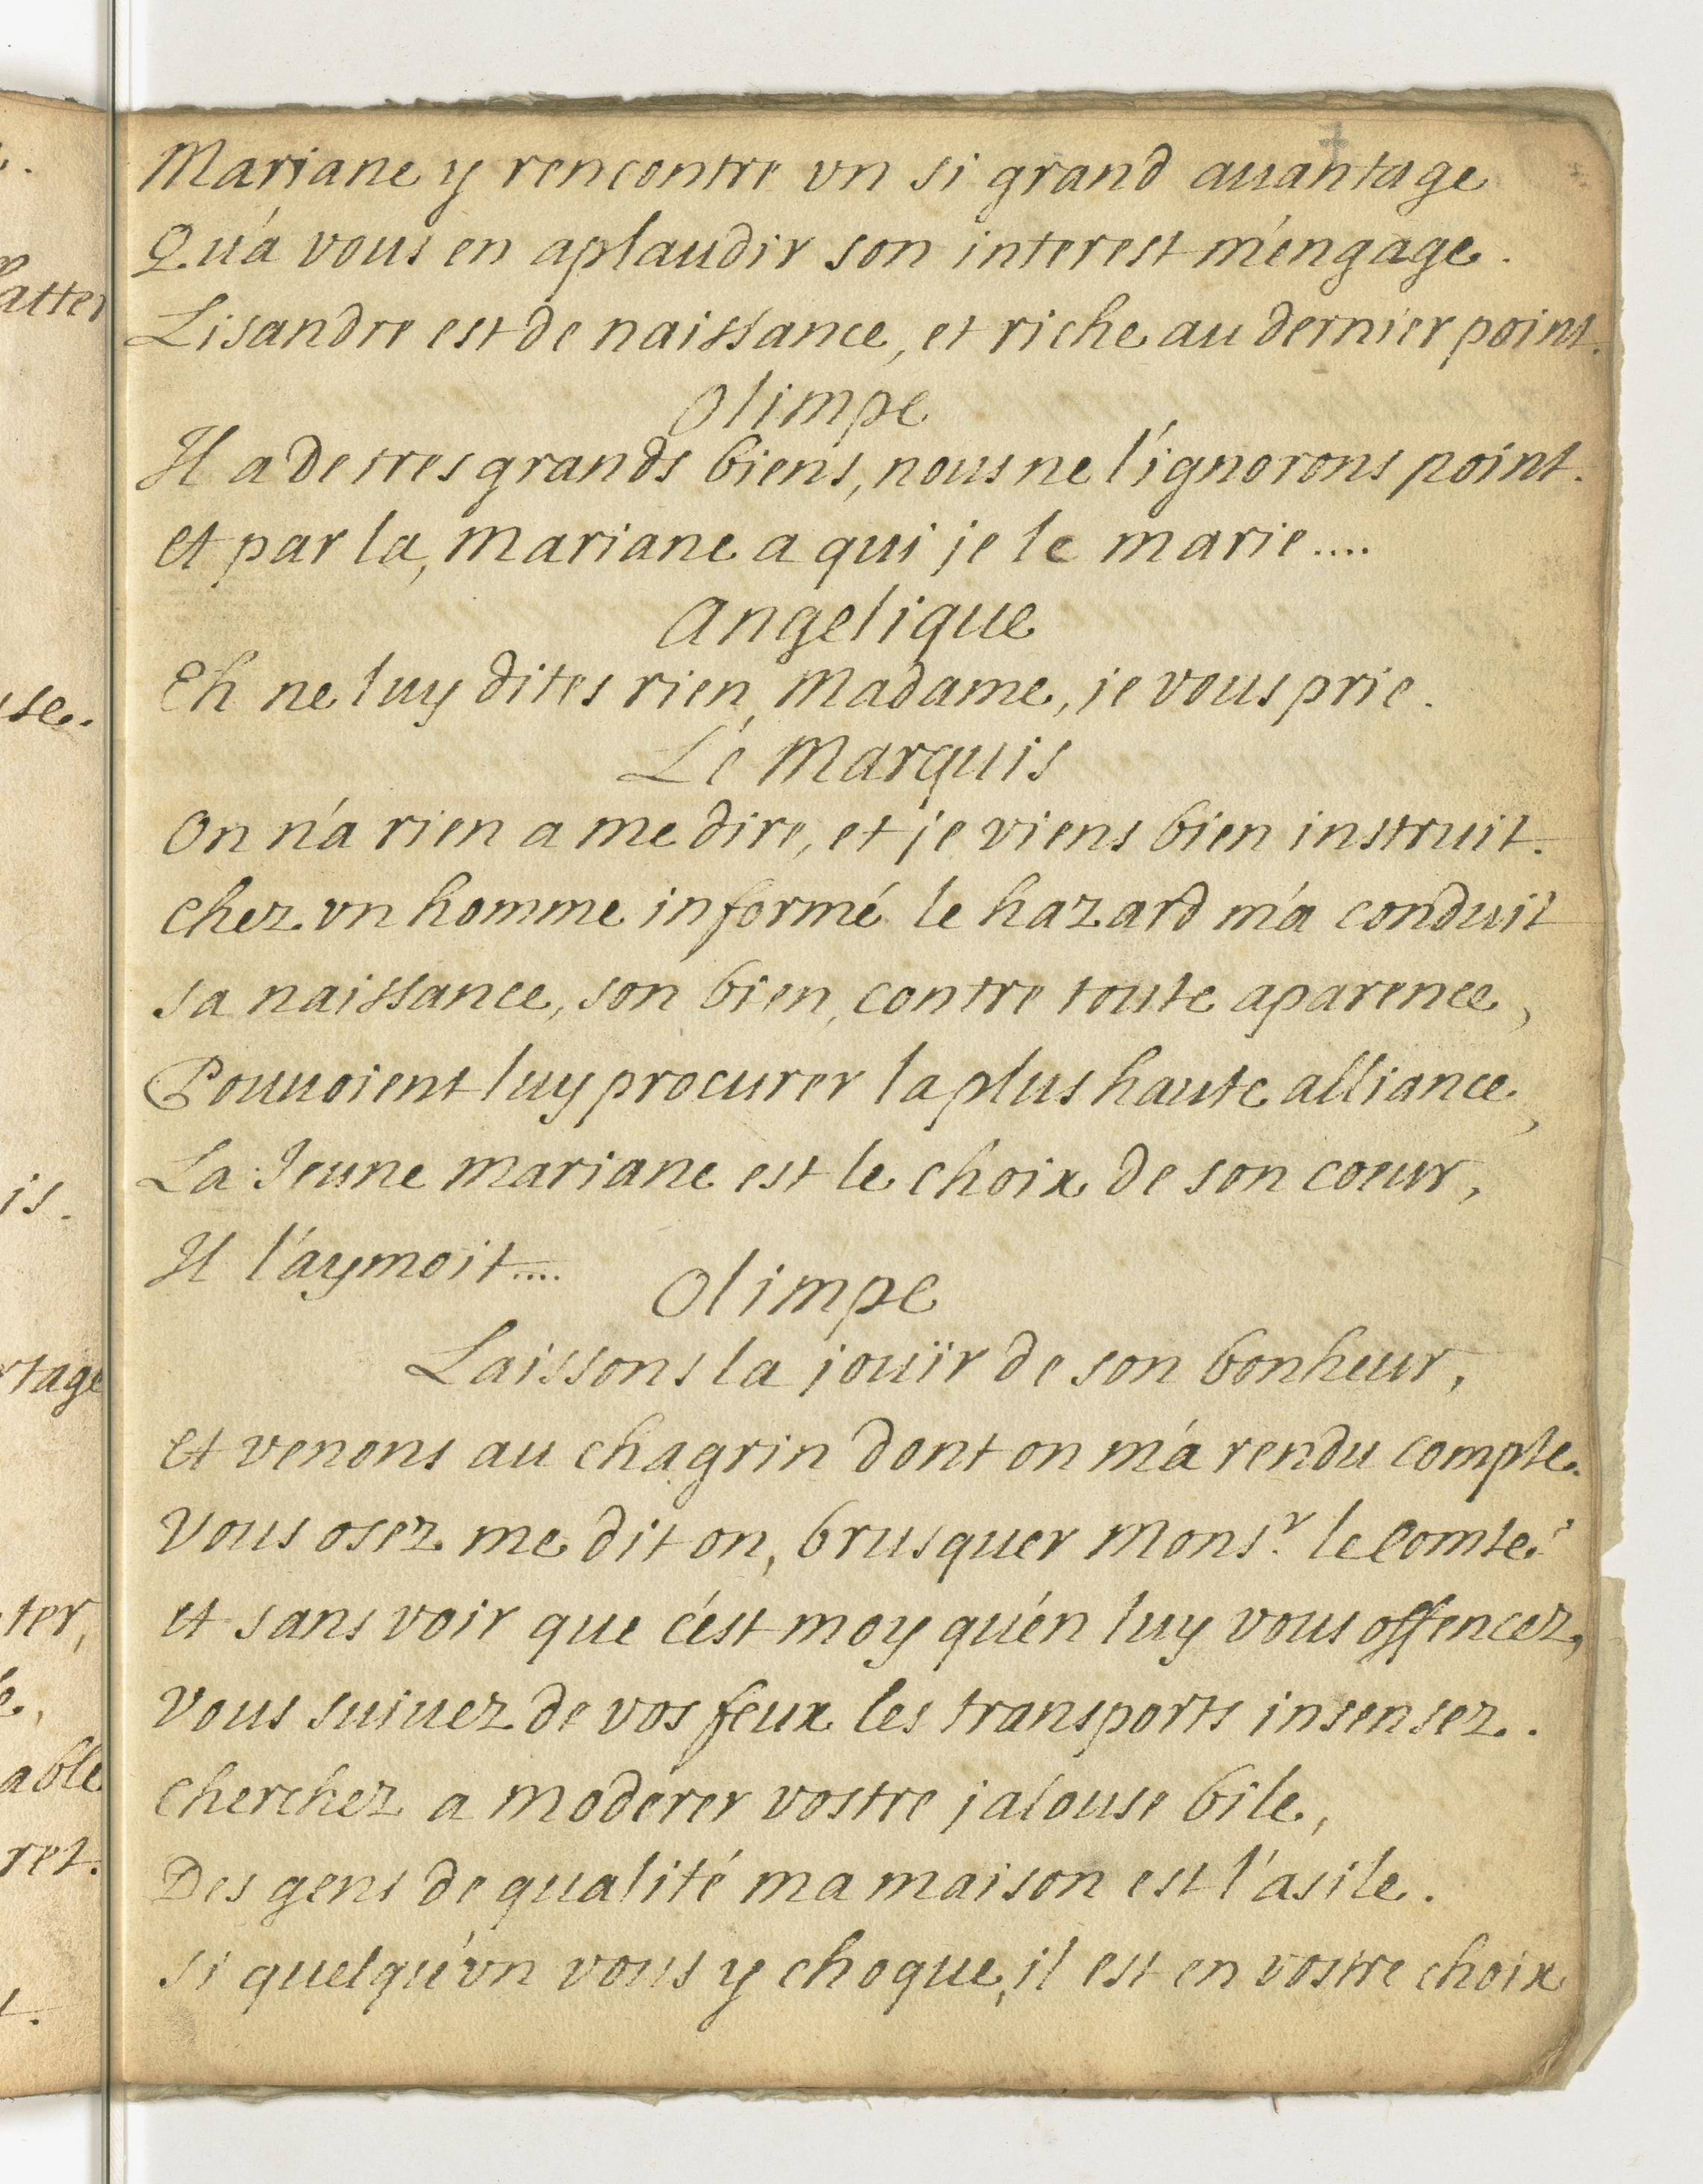 Mariane y rencontre vn si grand auantage
Qu'a vous en aplaudir son interest m'engage.
Lisandre est de naissance, et riche au dernier point.
Olimpe
Il a de tres grands biens, nous ne l'ignorons point.
et par la, Mariane a qui je le marie....
Angelique
Eh ne luy dites rien, Madame, je vous prie.
Le Marquis
On n'a rien a me dire, et je viens bien instruit.
chez vn homme informé le hazard m'a conduit
sa naissance, son bien, contre toute aparence,
Pouuoient luy procurer la plus haute alliance,
La Jeune Mariane est le choix de son coeur,
Il l'aymoit....
Olimpe
Laissons la jouïr de son bonheur,
et venons au chagrin dont on m'a rendu compte.
Vous osez me dit on, brusquer Mons.r le Comte?
et sans voir que c'est moy qu'en luy vous offencez,
Vous suiuez de vos feux les transports insensez.
Cherchez a moderer vostre jalouse bile,
Des gens de qualité ma maison est l'asile.
si quelqu'vn vous y choque, il est en vostre choix
atter
se.
is.
rtage
ter,
able
ret.